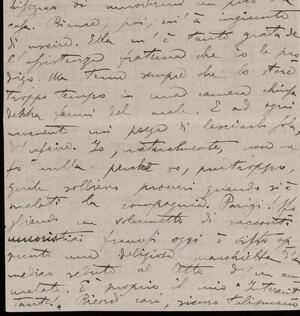 bisogno di muovermi un poco
casa. Bianca, poi, m'à ingiunto
di uscire. Ella m'è tanto grata de
l'assistenza fraterna che io le pro
digo. Ma teme sempre che lo stare
troppo tempo in una camera chiusa
debba farmi del male. E ad ogni
momento mi prega di lasciarla sola,
d'uscire. Io, naturalmente, non ne
fò nulla perchè so, purtroppo,
quale sollievo procuri quando si è
malati la compagnia. Parigi! Sfo
gliando un volumetto di racconti
umoristici francesi oggi ò visto ap
punto una deliziosa macchietta d'un
medico seduto al letto d'un am
malato. È proprio il mio "Intermit
tente!" Ricordi cari, sicuro talismano